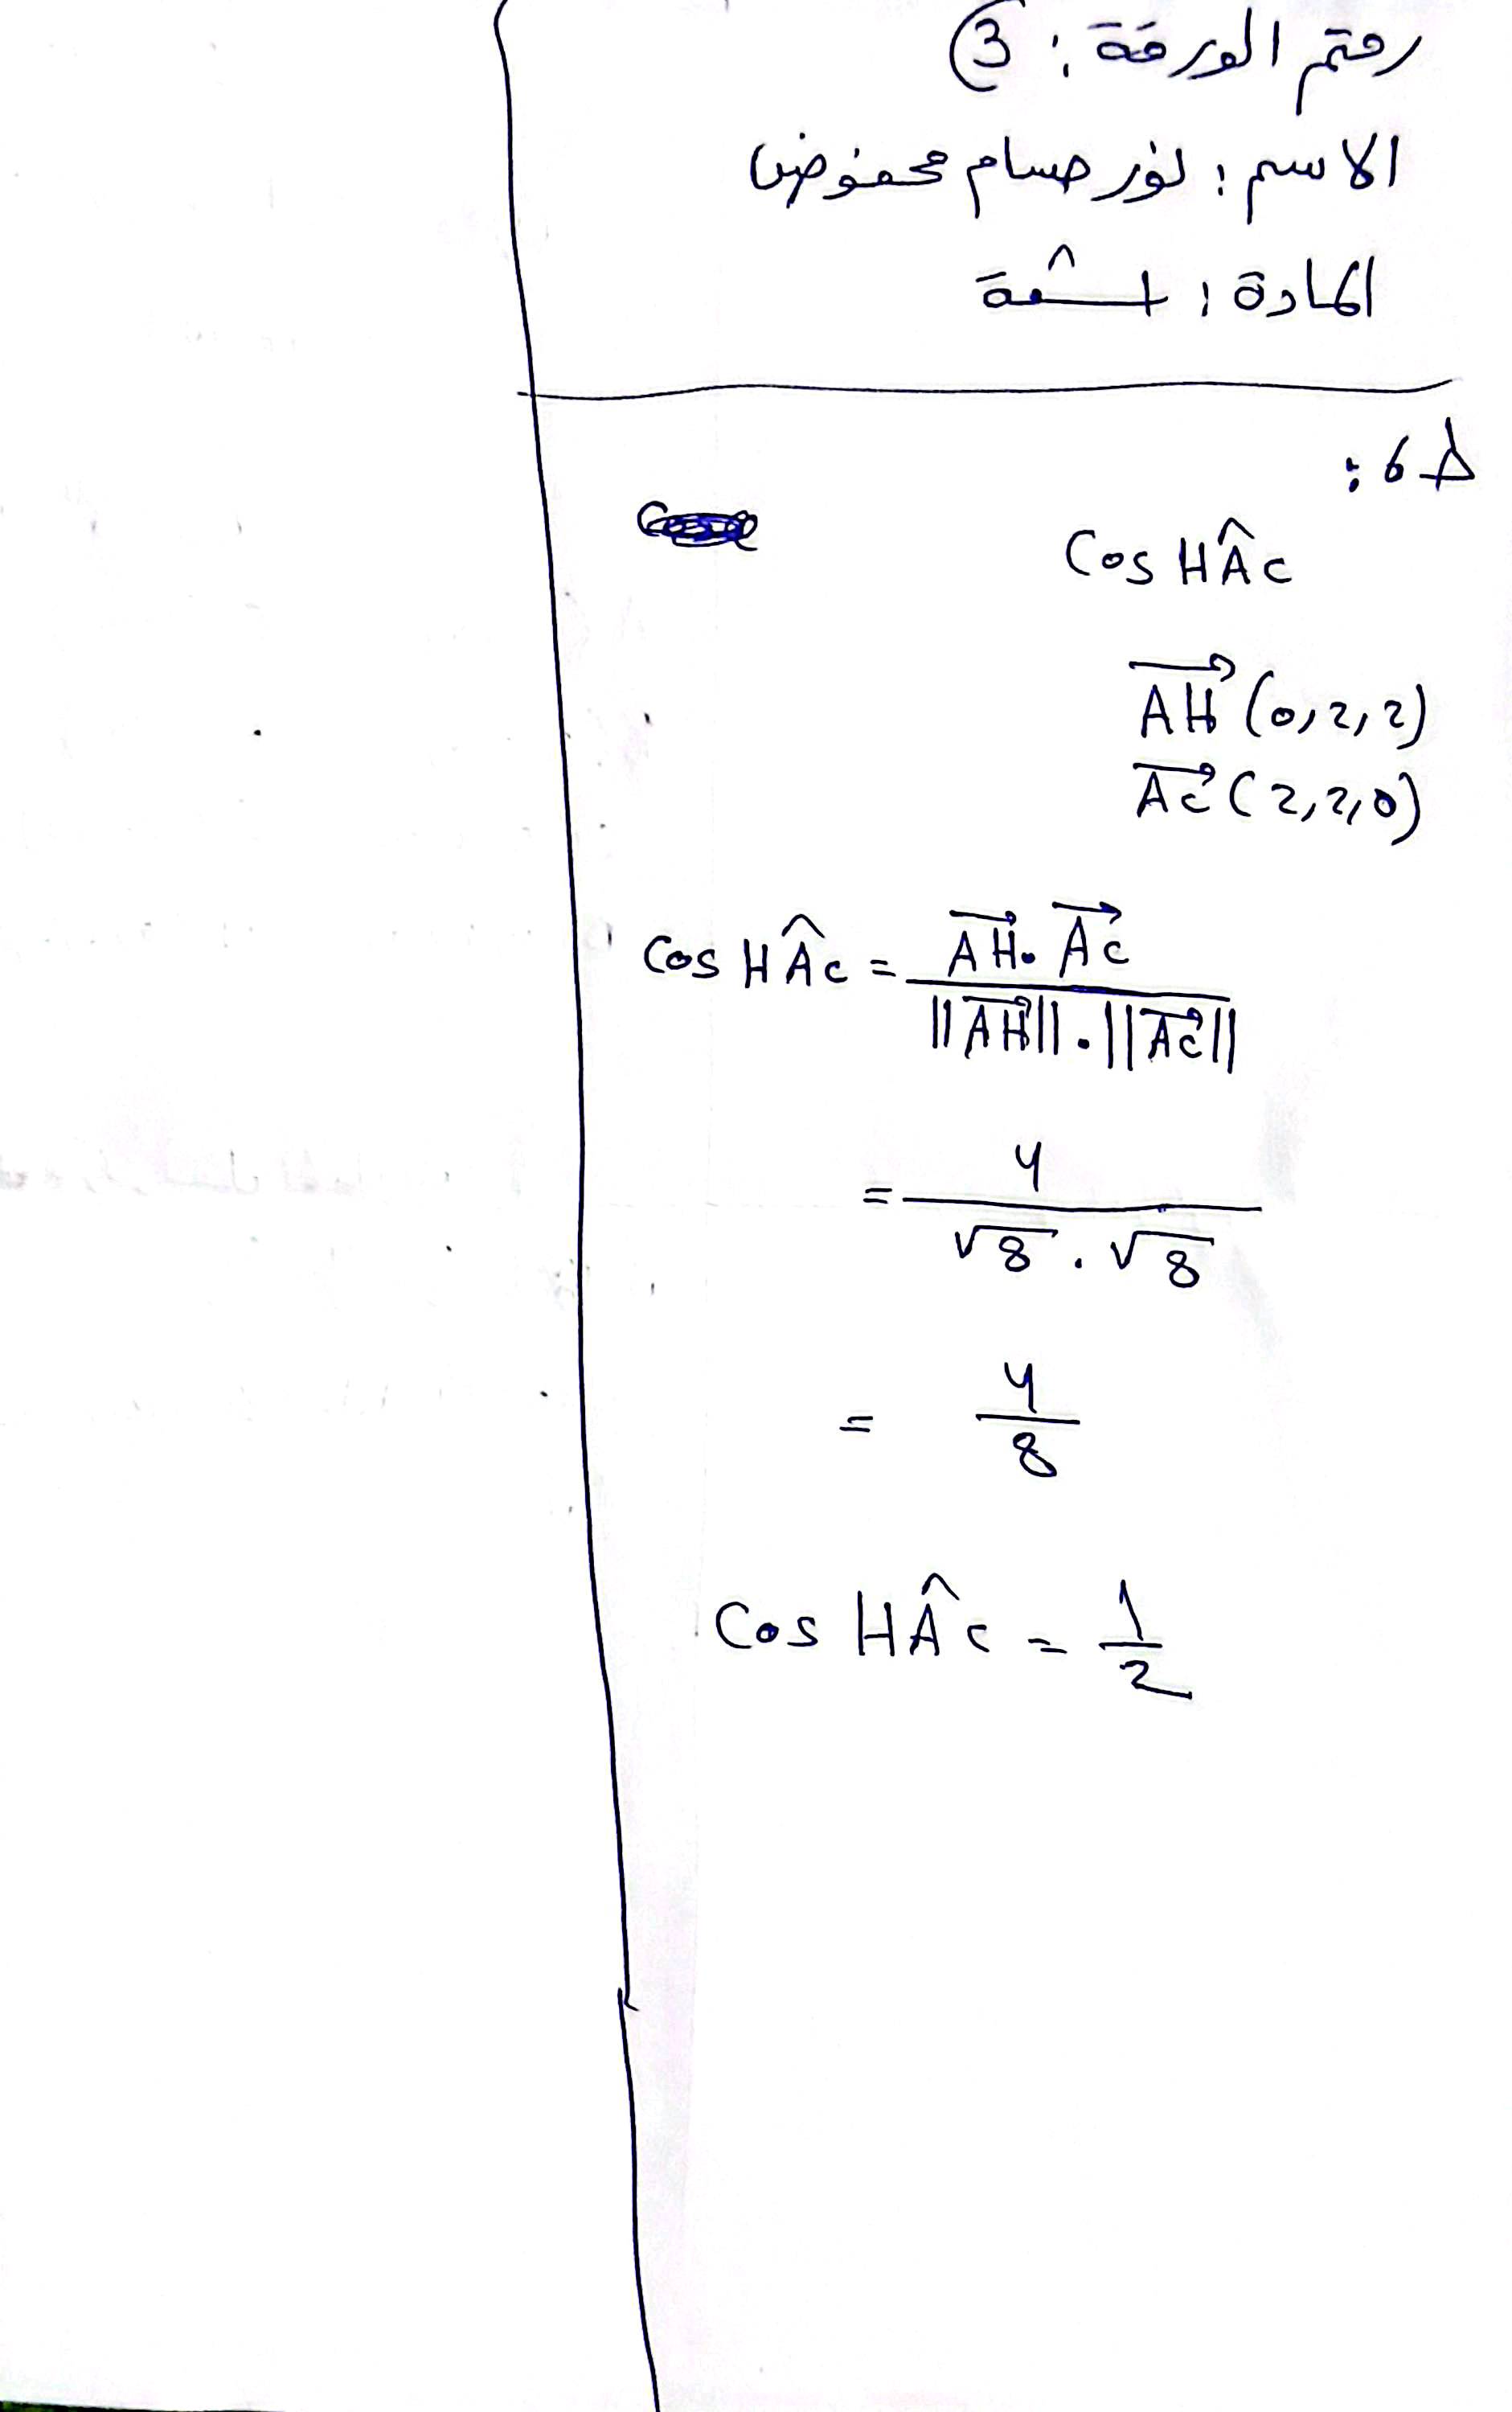 رقم الورقة: 3
الاسم: نور حسام محفوض
المادة: أشعة
ط6:
Cos HÂc
AH (0,2,2)
Ac (2,2,0)
Cos HÂc = AH . Ac / ||AH|| . ||Ac||
= 4 / √8 . √8
= 4 / 8
Cos HÂc = 1 / 2